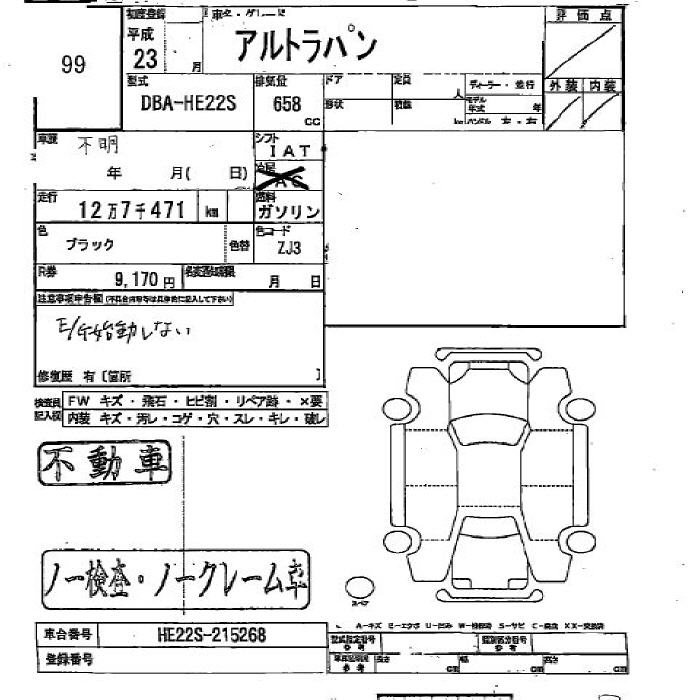 99
初度登録 車名・グレード 評価点
平成 アルトラパン
23 月
型式 排気量 ドア 定員 ディーラー・並行 外装 内装
DBA-HE22S 658 人 モデル年式 年
CC 形状 積載 kg ハンドル 左・右
車歴 不明 シフト
IAT
年 月( 日) 冷房
AC
走行 燃料
12万7千471 km ガソリン
色 色コード
ブラック 色替 ZJ3
R券 名変期限
9,170円 月 日
注意事項申告欄(不具合箇所等は具体的に記入して下さい)
E/G始動しない
修復歴 有〔箇所 〕
検査員記入欄 FW キズ・飛石・ヒビ割・リペア跡・×要
内装 キズ・汚レ・コゲ・穴・スレ・キレ・破レ
不動車
ノー検査・ノークレーム車
スペア
A-キズ E-エクボ U-凹ミ W-補修跡 S-サビ C-腐食 XX-交換済
車台番号 HE22S-215268 型式指定番号 参考 類別区分番号 参考
登録番号 参考 長さ cm 幅 cm 高さ cm